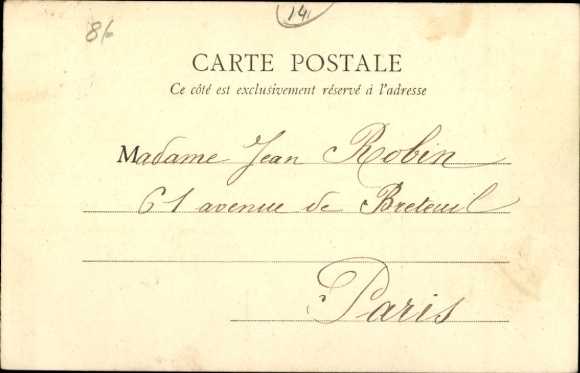 14
8f
CARTE POSTALE
Ce côté est exclusivement réservé à l'adresse
Madame Jean Robin
61 avenue de Breteuil
Paris